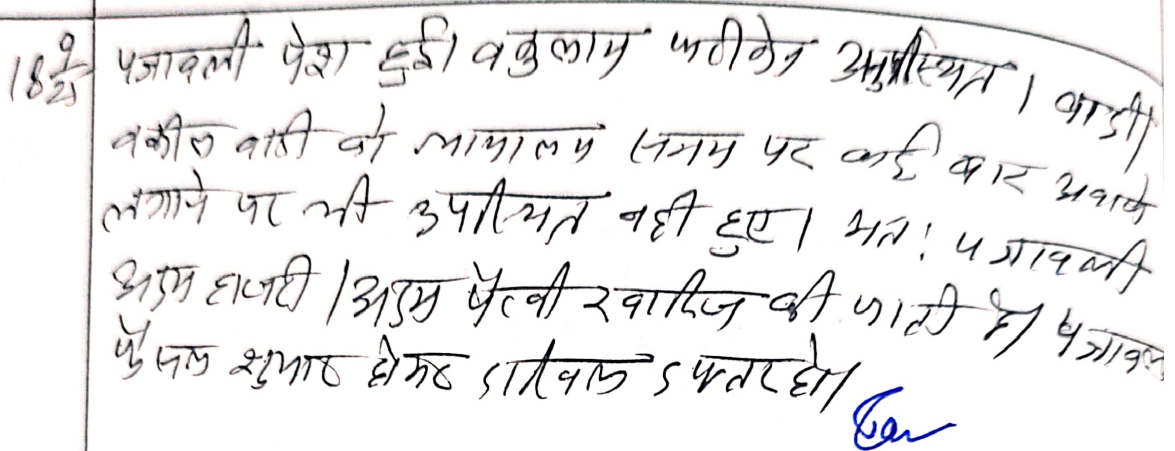 18/9/25 पत्रावली पेश हुई। वकुलाय फरीकेन अनुपस्थित। वादी/
वकील वादी को न्यायालय समय पर कई बार अवाजे
लगाने पर भी उपस्थित नही हुए। अतः पत्रावली
अदम हाजरी / अदम पैरवी खारिज की जाती है। पत्रावली
फैसल शुमार होकर दाखिल दफ्तर हो।